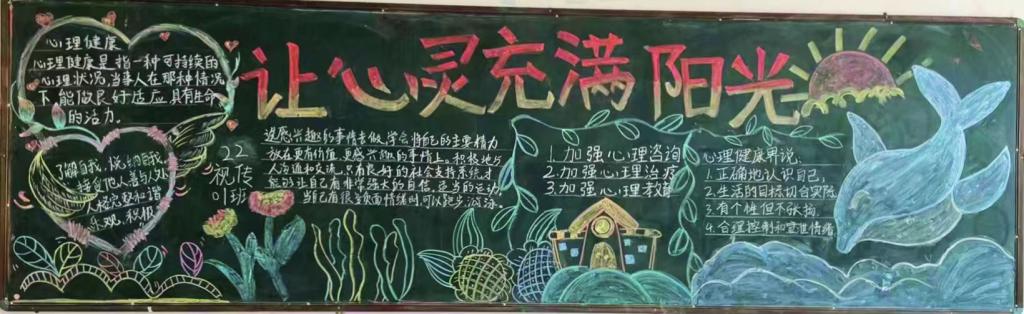 让心灵充满阳光
心理健康
心理健康是指一种可持续的
心理状况,当事人在那种情况
下能做良好适应具有生命
的活力。
了解自我,悦纳自我,
接受他人善与人处
情绪稳定和谐
乐观,积极
22
视传
01班
选感兴趣的事情去做,学会将自己的主要精力
放在更有价值,更感兴趣的事情上。积极地与
人沟通和交流,只有良好的社会支持系统才
能够让自己有非常强大的自信,适当的运动,
当自己有很多负面情绪时,可以跑步,游泳。
1.加强心理咨询
2.加强心理治疗
3.加强心理教育
心理健康界说:
1.正确地认识自己,
2.生活的目标切合实际
3.有个性但不张扬
4.合理控制和宣泄情绪